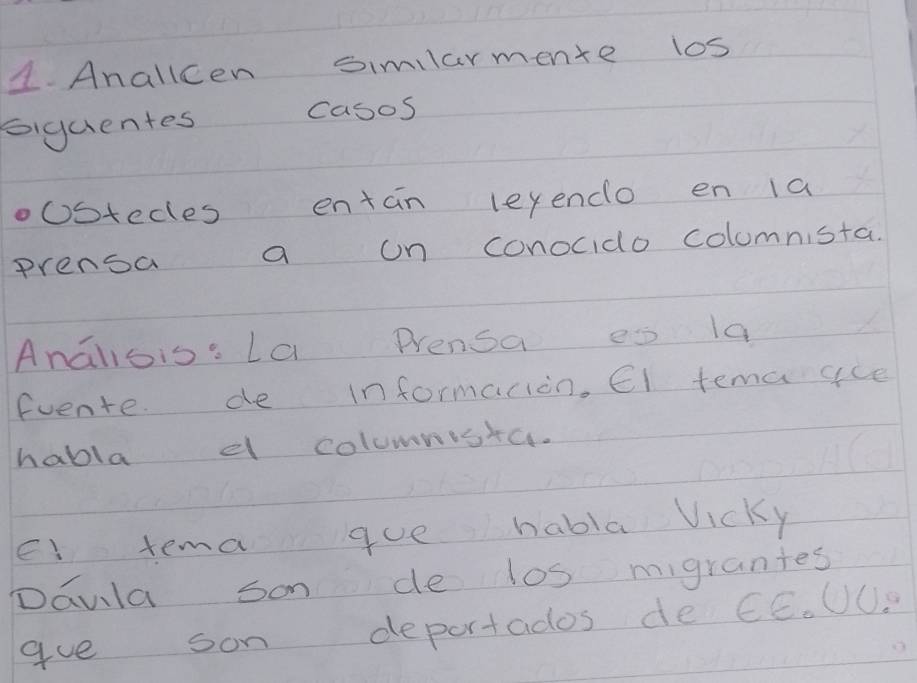 1. Analicen similarmente los
siguentes casos
• Ustedes entán leyendo en la
prensa a un conocido columnista.
Análisis: La Prensa es la
fuente. de información. El tema que
habla el columnista.
El tema que habla Vicky
Dávila son de los migrantes
que son deportados de EE.UU.